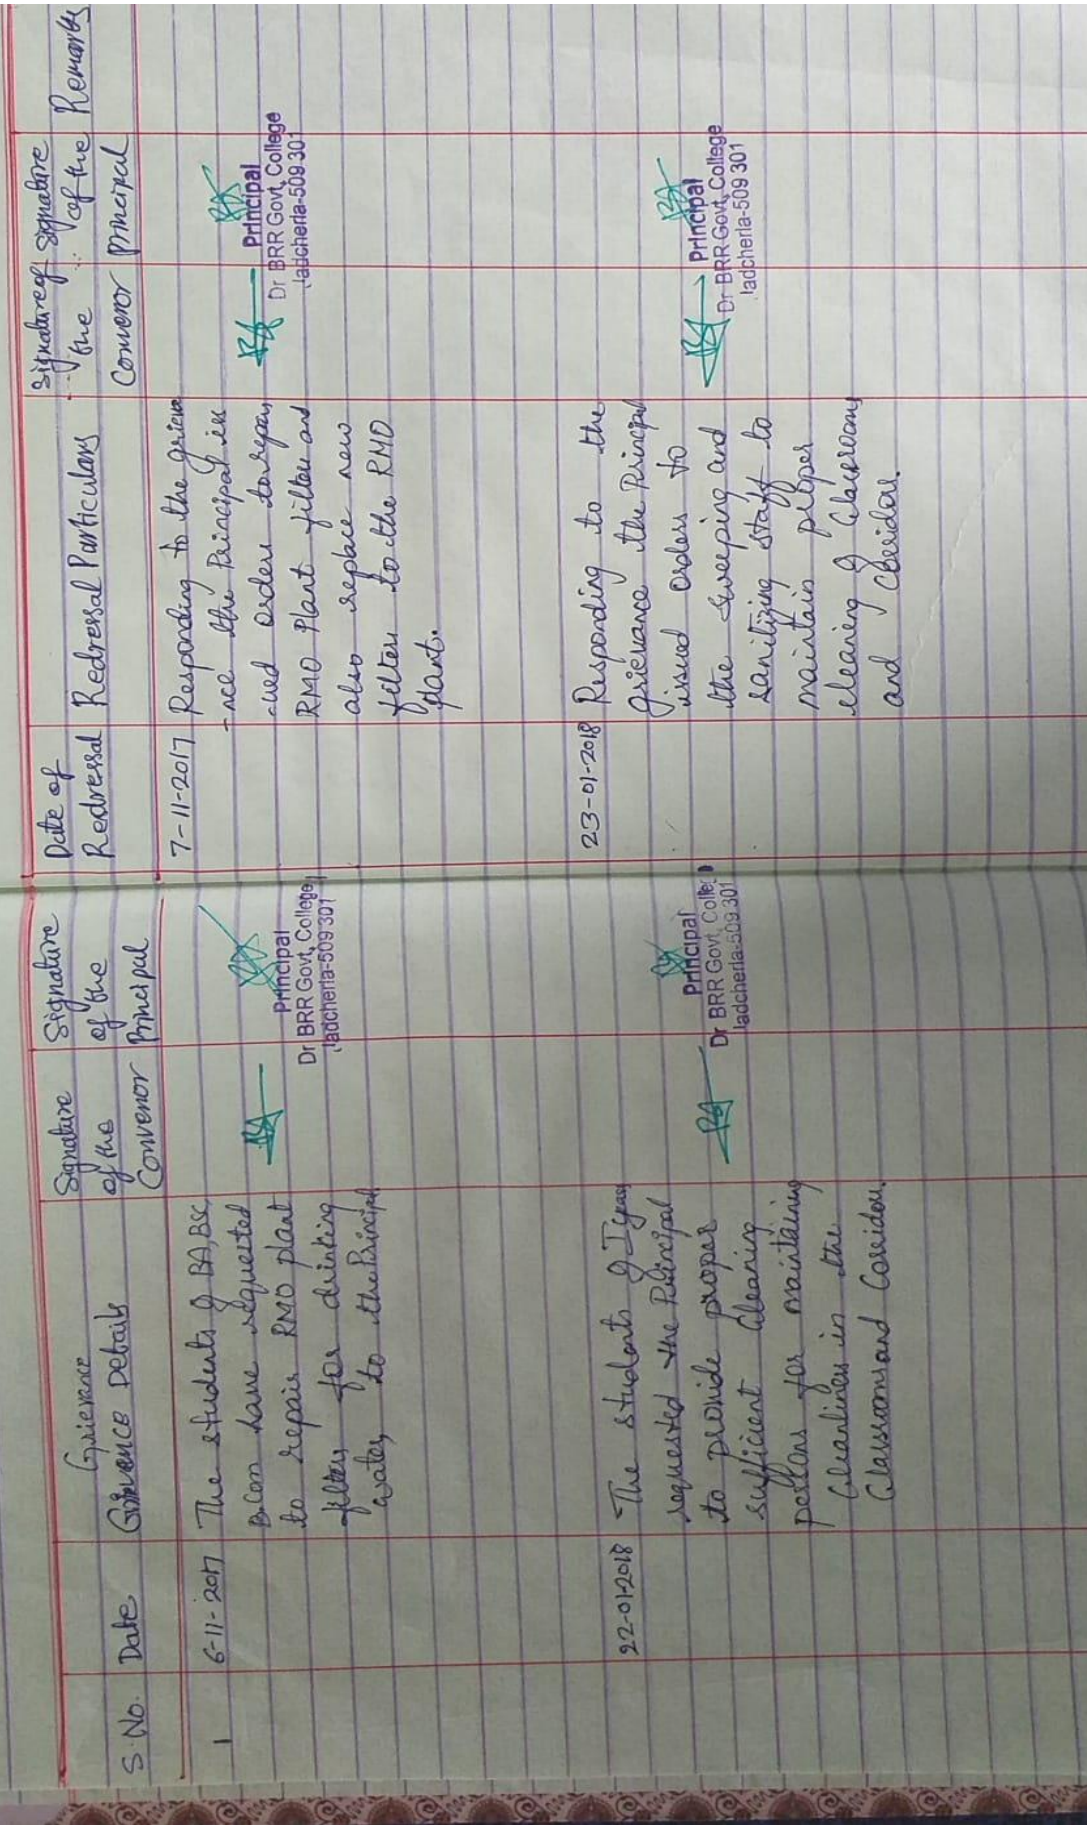 S. No.
Date
Grievance
Grievence Details
Signature
of the
Convenor
Signature
of the
Principal
Date of
Redressal
Redressal Particulars
Signature of
the
Convenor
Signature
of the
Principal
Remarks
1
6-11-2017
The students of BA, BSC,
B.Com have requested
to repair RMO plant
filters for drinking
water, to the Principal
Principal
Dr BRR Govt, College
Jadcherla-509 301
7-11-2017
Responding to the grieva
-nce the Principal iss
-ued orders to repair
RMO Plant filter and
also replace new
filters to the RMO
plant.
Principal
Dr BRR Govt, College
Jadcherla-509 301
22-01-2018
The students of I years
requested the Principal
to provide proper
sufficient cleaning
persons for maintaining
cleanliness in the
Classrooms and Corridors.
Principal
Dr BRR Govt, College
Jadcherla-509 301
23-01-2018
Responding to the
grievance the Principal
issued orders to
the sweeping and
sanitizing staff to
maintain proper
cleaning of classrooms
and Corridors.
Principal
Dr BRR Govt, College
Jadcherla-509 301